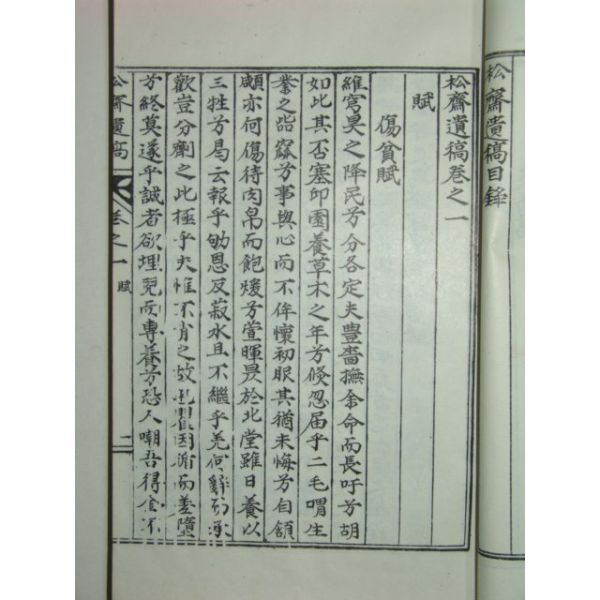 松齋遺稿目錄
松齋遺稿卷之一
賦
傷貧賦
維穹昊之降民芳分各定夫豊嗇撫余命而長吁芳胡
如此其否塞卬園養草木之年芳倏忽届乎二毛喟生
業之啙窳芳事與心而不侔懷初服其猶未悔芳自頷
頗亦何傷待肉帛而飽煖芳萱暉晷於北堂雖日養以
三牲芳曷云報乎劬恩反菽水且不繼乎羌何辭而承
歡豈分劑之此極乎夫惟不肖之故
因循而差墮
芳終莫遂乎誠者欲埋兒而專養芳恐人嘲吾得金不
松齋遺稿
卷之一
賦
二